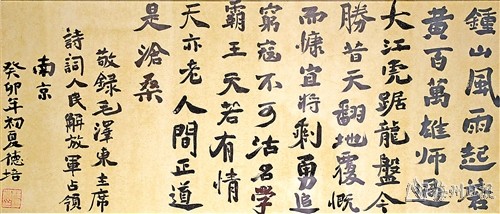 鍾山風雨起蒼
黄百萬雄師過
大江虎踞龍盤今
勝昔天翻地覆慨
而慷宜將剩勇追
窮寇不可沽名學
霸王天若有情
天亦老人間正道
是滄桑
敬錄毛澤東主席
詩詞人民解放軍占領
南京
癸卯年初夏德培